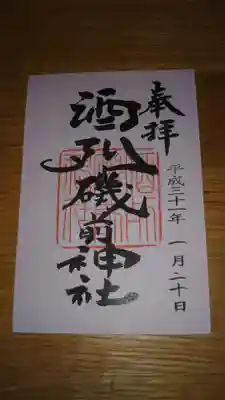 奉拝
平成三十一年 一月二十日
酒列磯前神社